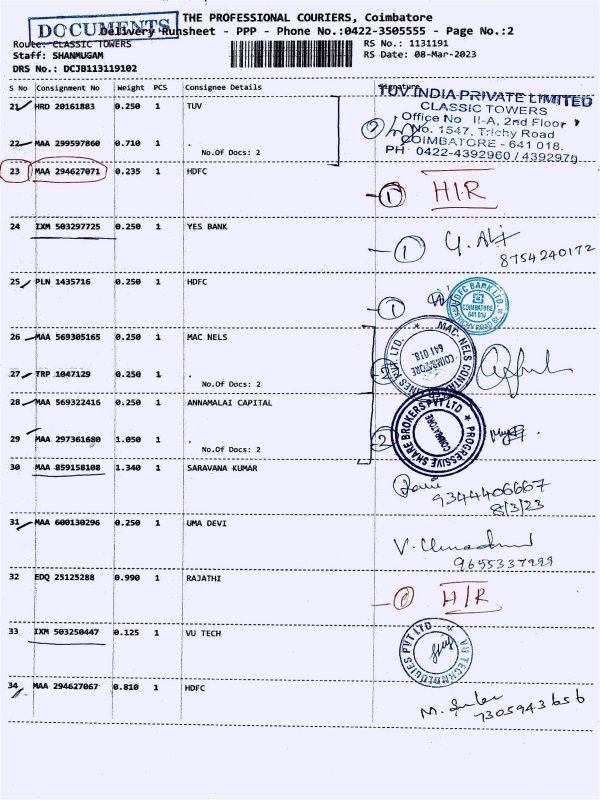 THE PROFESSIONAL COURIERS, Coimbatore
DOCUMENTS
Delivery Runsheet - PPP - Phone No.:0422-3505555 - Page No.:2
Route: CLASSIC TOWERS
RS No.: 1131191
Staff: SHANMUGAM
RS Date: 08-Mar-2023
DRS No.: DCJB113119102
S No Consignment No Weight PCS Consignee Details Signature
21 HRD 20161883 0.250 1 TUV
TUV INDIA PRIVATE LIMITED
CLASSIC TOWERS
Office No II-A, 2nd Floor
No. 1547, Trichy Road
COIMBATORE - 641 018.
PH: 0422-4392960 / 4392970
2
22 MAA 299597860 0.710 1 .
No.Of Docs: 2
23 MAA 294627071 0.235 1 HDFC
1 H/R
24 IXM 503297725 0.250 1 YES BANK
1
8754240172
25 PLN 1435716 0.250 1 HDFC
1
HDFC BANK LTD.
COIMBATORE
641 018
TRICHY ROAD BR.
26 MAA 569305165 0.250 1 MAC NELS
2
COIMBATORE
641 018.
27 TRP 1047129 0.250 1 .
No.Of Docs: 2
28 MAA 569322416 0.250 1 ANNAMALAI CAPITAL
2
PROGRESSIVE SHARE BROKERS PVT LTD
COIMBATORE
29 MAA 297361680 1.050 1 .
No.Of Docs: 2
30 MAA 859158108 1.340 1 SARAVANA KUMAR
9344406667
8/3/23
31 UMAA 600130296 0.250 1 UMA DEVI
9655337999
32 EDQ 25125288 0.990 1 RAJATHI
1 H/R
33 IXM 503250447 0.125 1 VU TECH
VU TECHNOLOGIES PVT LTD.
34 MAA 294627067 0.810 1 HDFC
7305943656